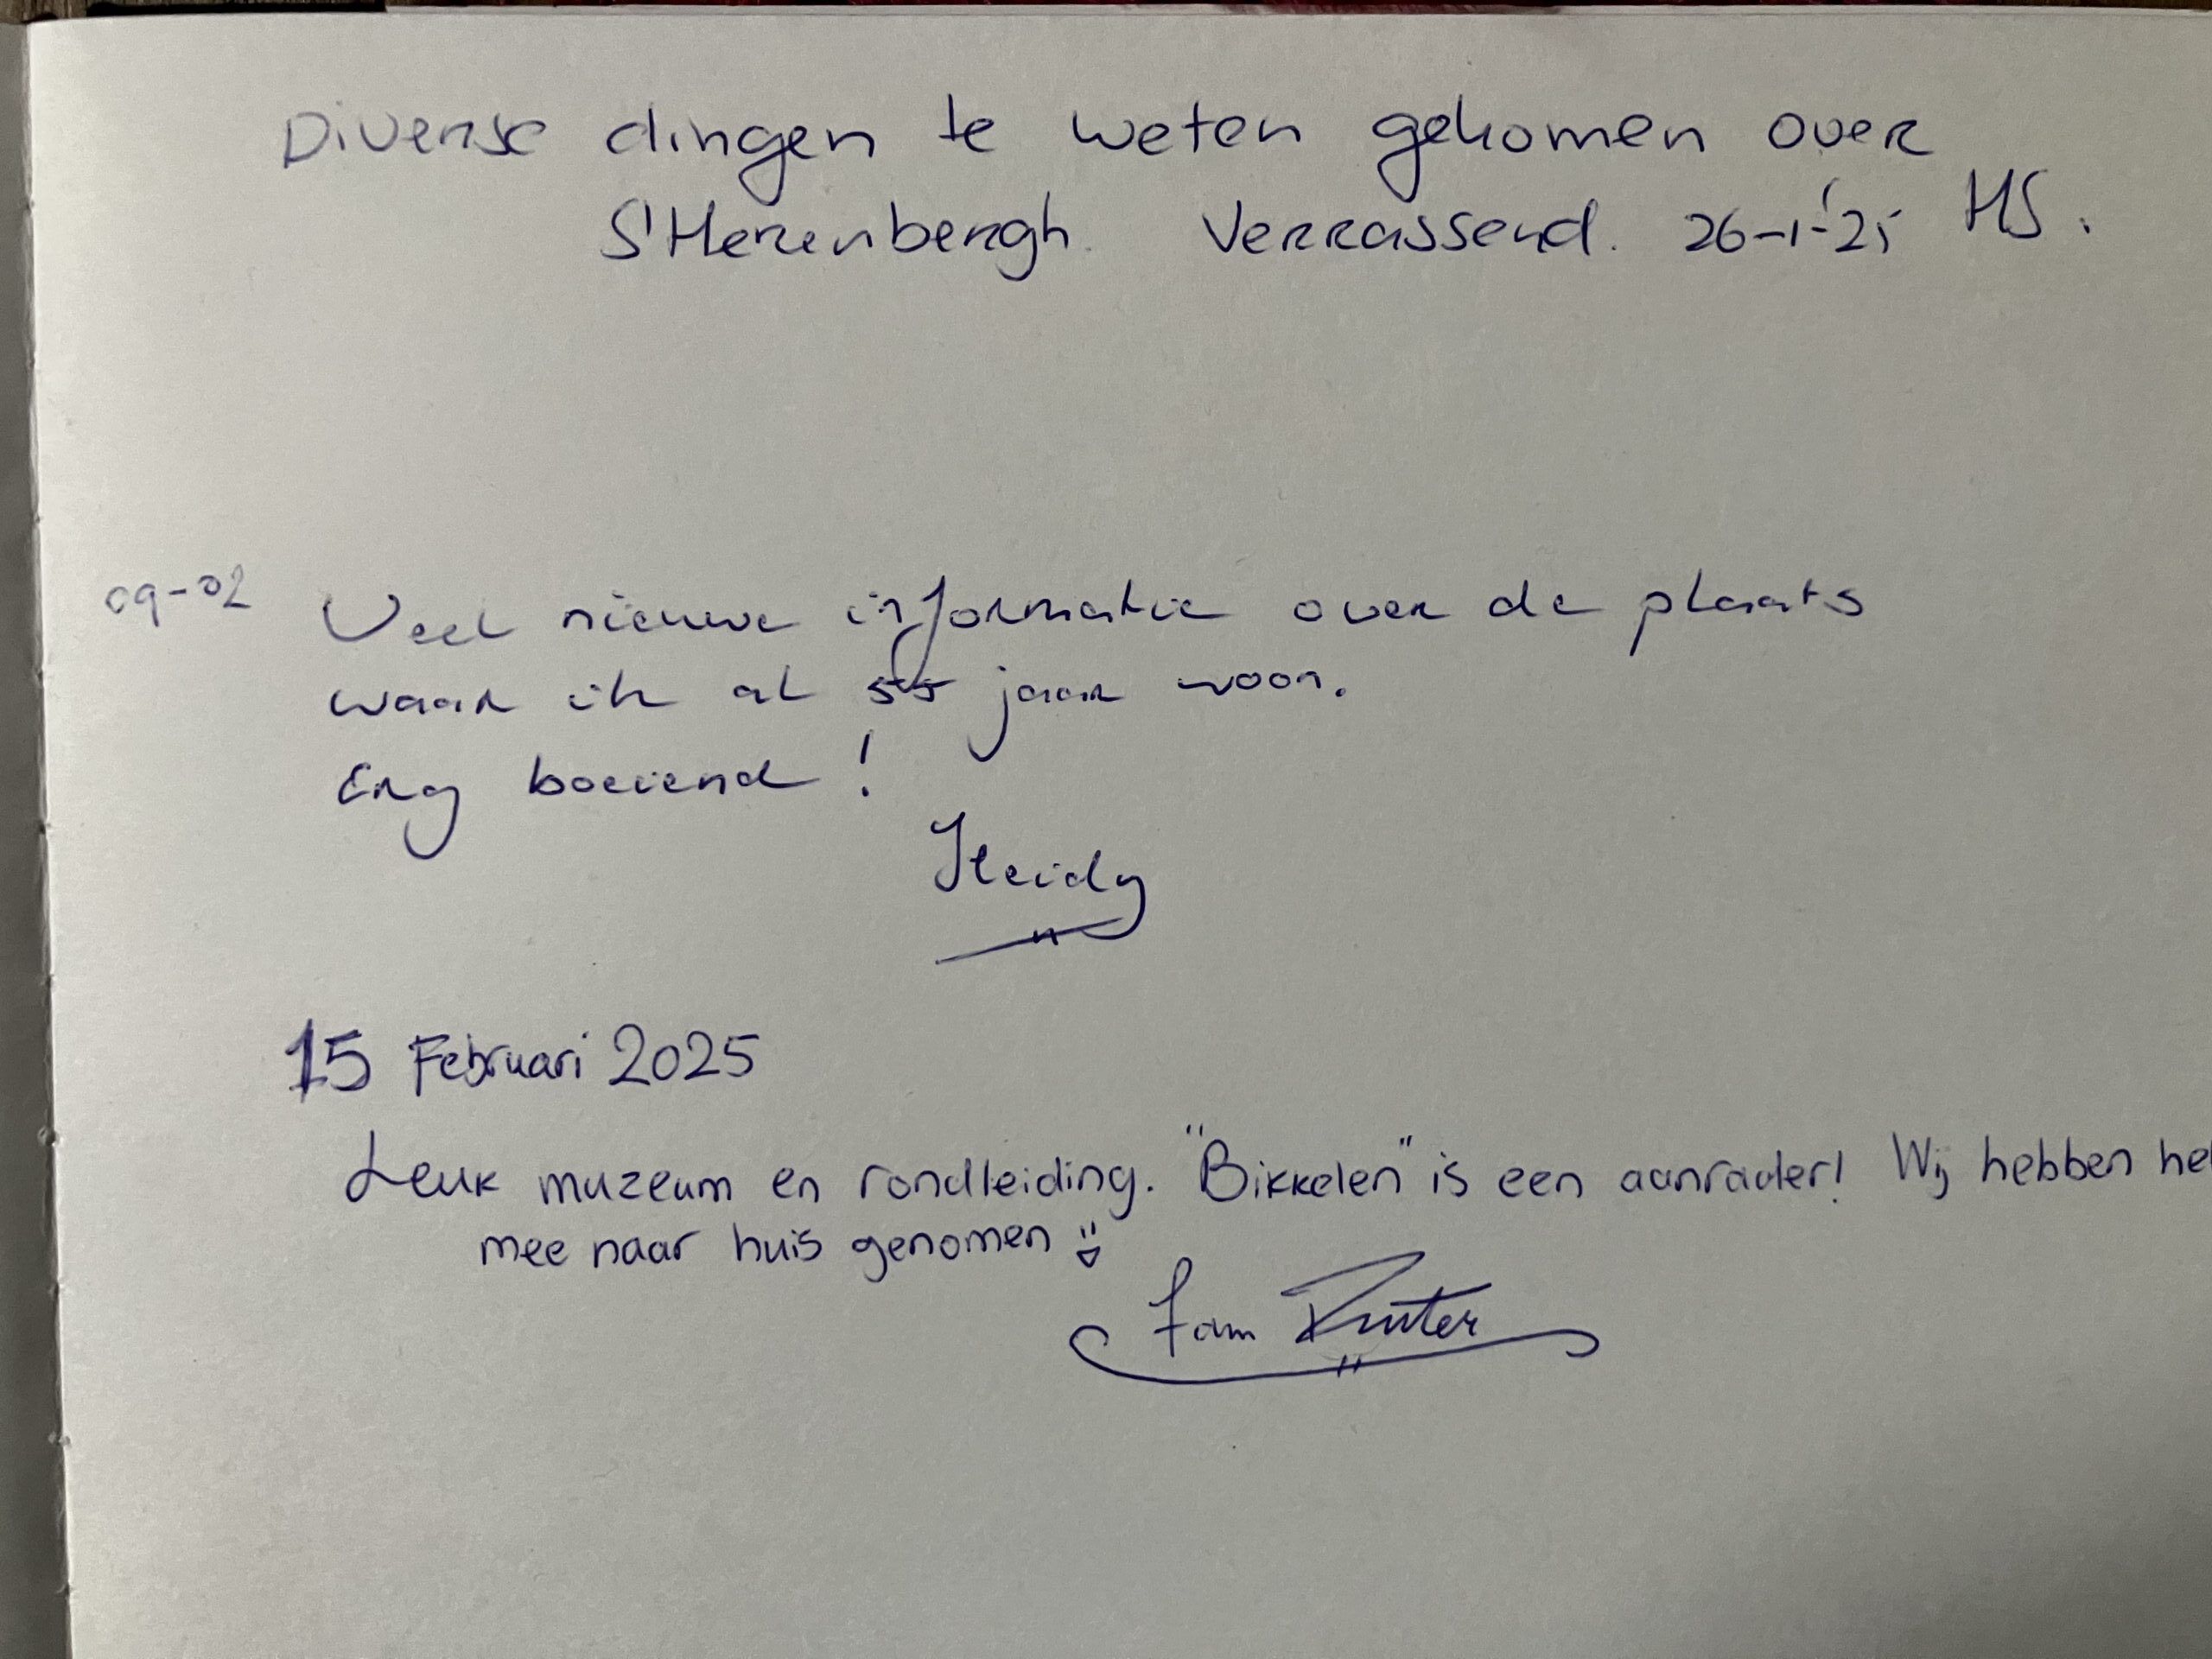 Diverse dingen te weten gekomen over
S'Herenbergh. Verrassend. 26-1-'25 HS.
09-02 Veel nieuwe informatie over de plaats
waar ik al 55 jaar woon.
Erg boeiend!
Heidy
15 Februari 2025
Leuk muzeum en rondleiding. "Bikkelen" is een aanrader! Wij hebben he
mee naar huis genomen
Fam Ruiter